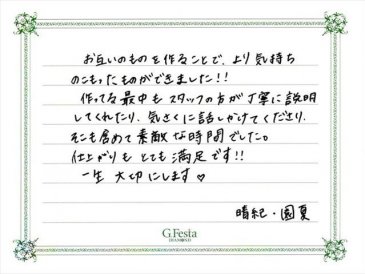 お互いのものを作ることで、より気持ち
のこもったものができました!!
作ってる最中もスタッフの方が丁寧に説明
してくれたり、気さくに話しかけてくださり、
そこも含めて素敵な時間でした。
仕上がりもとても満足です!!
一生大切にします♡
晴紀・園夏
G.Festa
DIAMOND